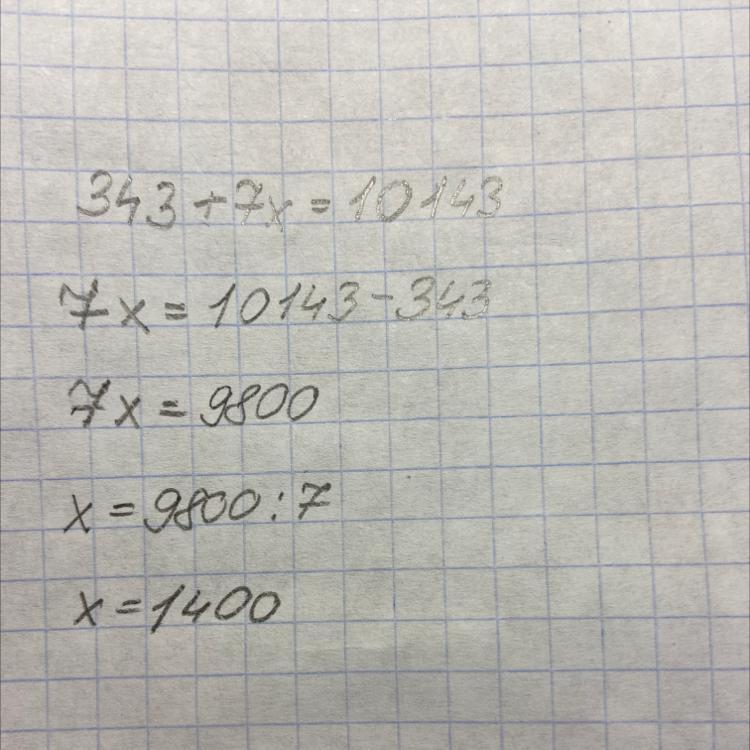 343+7x=10143
7x=10143-343
7x=9800
x=9800:7
x=1400